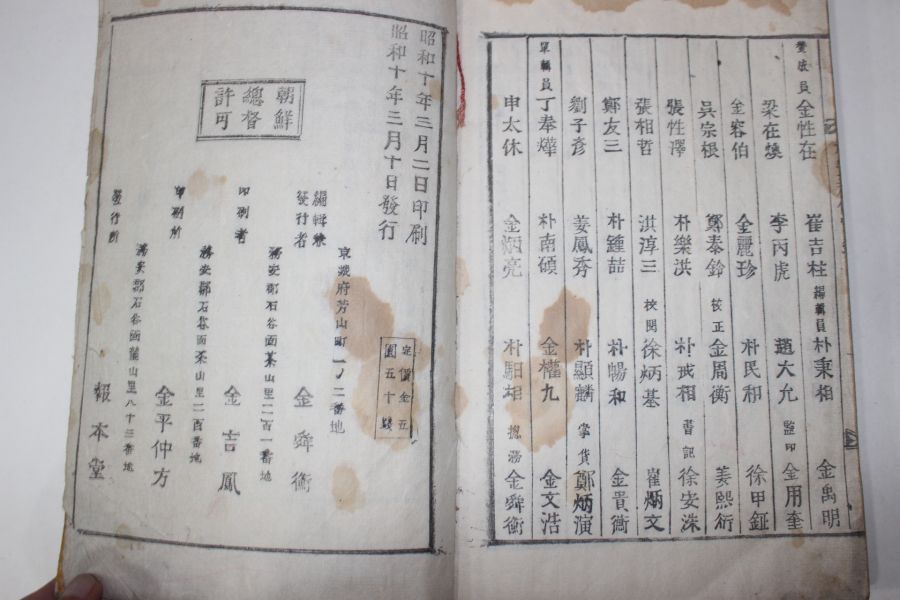 贊成員 金性在 崔吉柱 編輯員 朴秉相 金禹明
梁在煥 李丙虎 趙大允 監印 金用奎
金容伯 金麗珍 朴民和 徐甲鉦
吳宗根 鄭泰鈴 校正 金周衡 姜熙衍
張性澤 朴樂洪 朴戎相 書記 徐安洙
張相哲 洪淳三 校閱 徐炳基 崔炳文
鄭友三 朴鍾喆 朴暢和 金貴衡
劉子彦 姜鳳秀 朴顯麟 掌貨 鄭炳演
單輯員 丁奉燁 朴南碩 金權九 金文浩
申太休 金炳亮 朴馹相 摠務 金舜衡
昭和十年三月二日印刷
昭和十年三月十日發行
朝鮮
總督
許可
定價金五
圓五十錢
京城府芳山町一ノ二番地
編輯兼
發行者 金舜衡
務安郡石谷面茶山里二百一番地
印刷者 金吉鳳
務安郡石谷面茶山里二百番地
印刷所 金平仲方
務安郡石谷面 山里八十三番地
發行所 報本堂